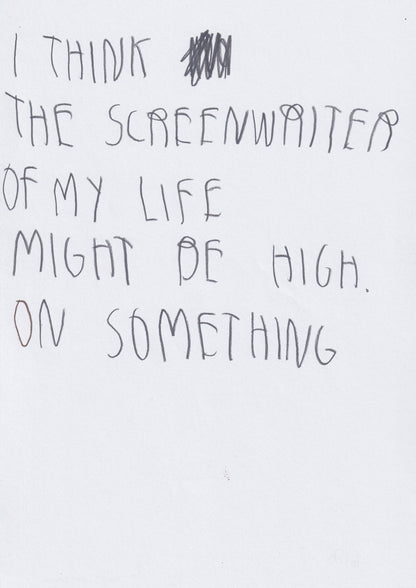 I THINK
THE SCREENWRITER
OF MY LIFE
MIGHT BE HIGH.
ON SOMETHING